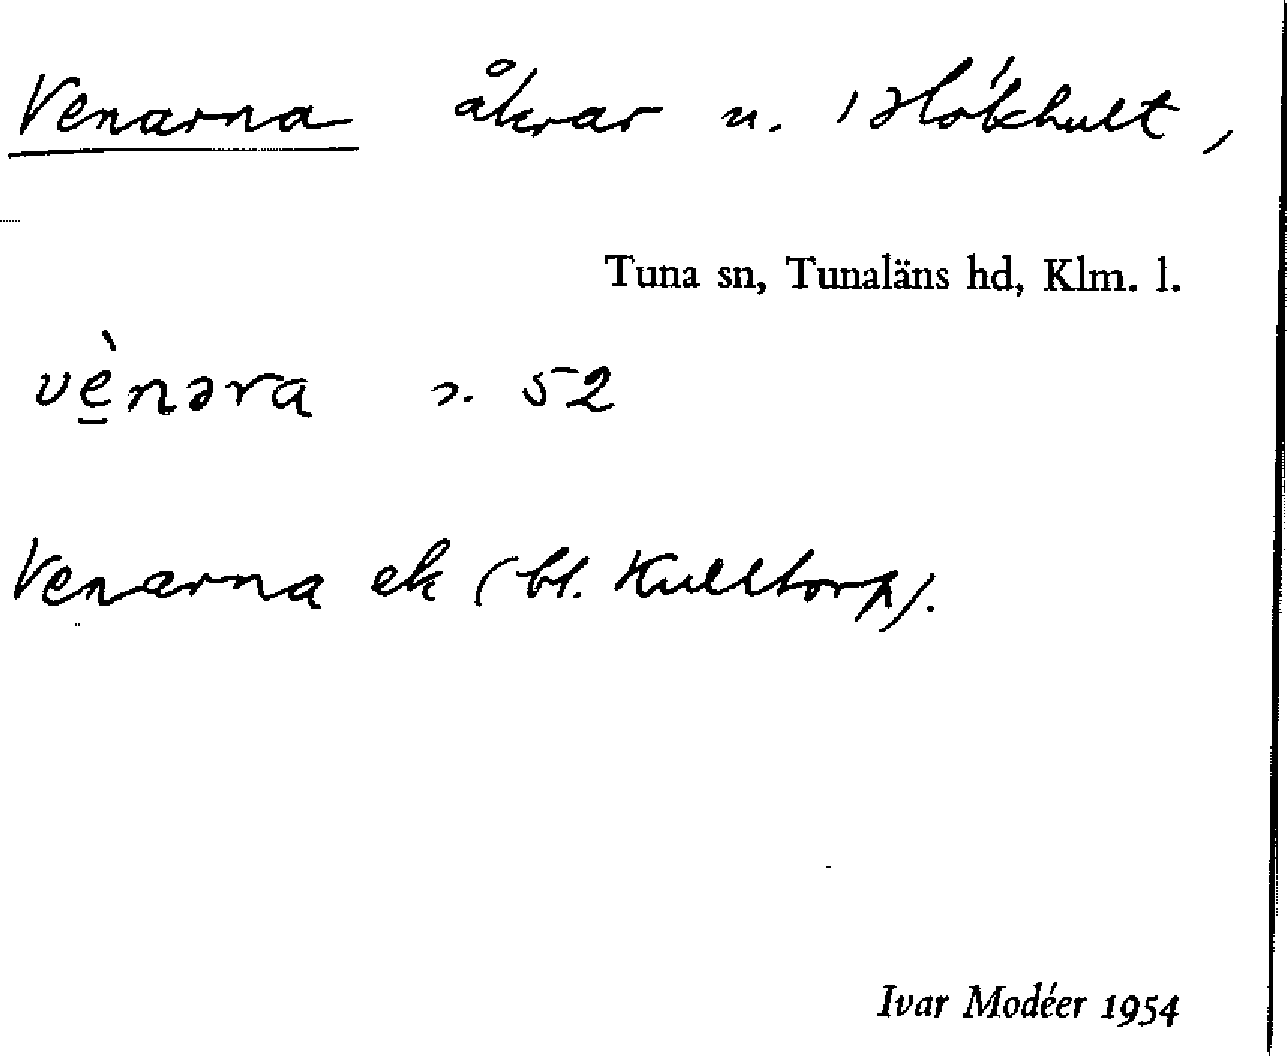 Venarna åkrar u. Hökhult,
Tuna sn, Tunaläns hd, Klm. l.
vènəra s. 52
Venarna ek (bl. Kulltorp).
Ivar Modéer 1954